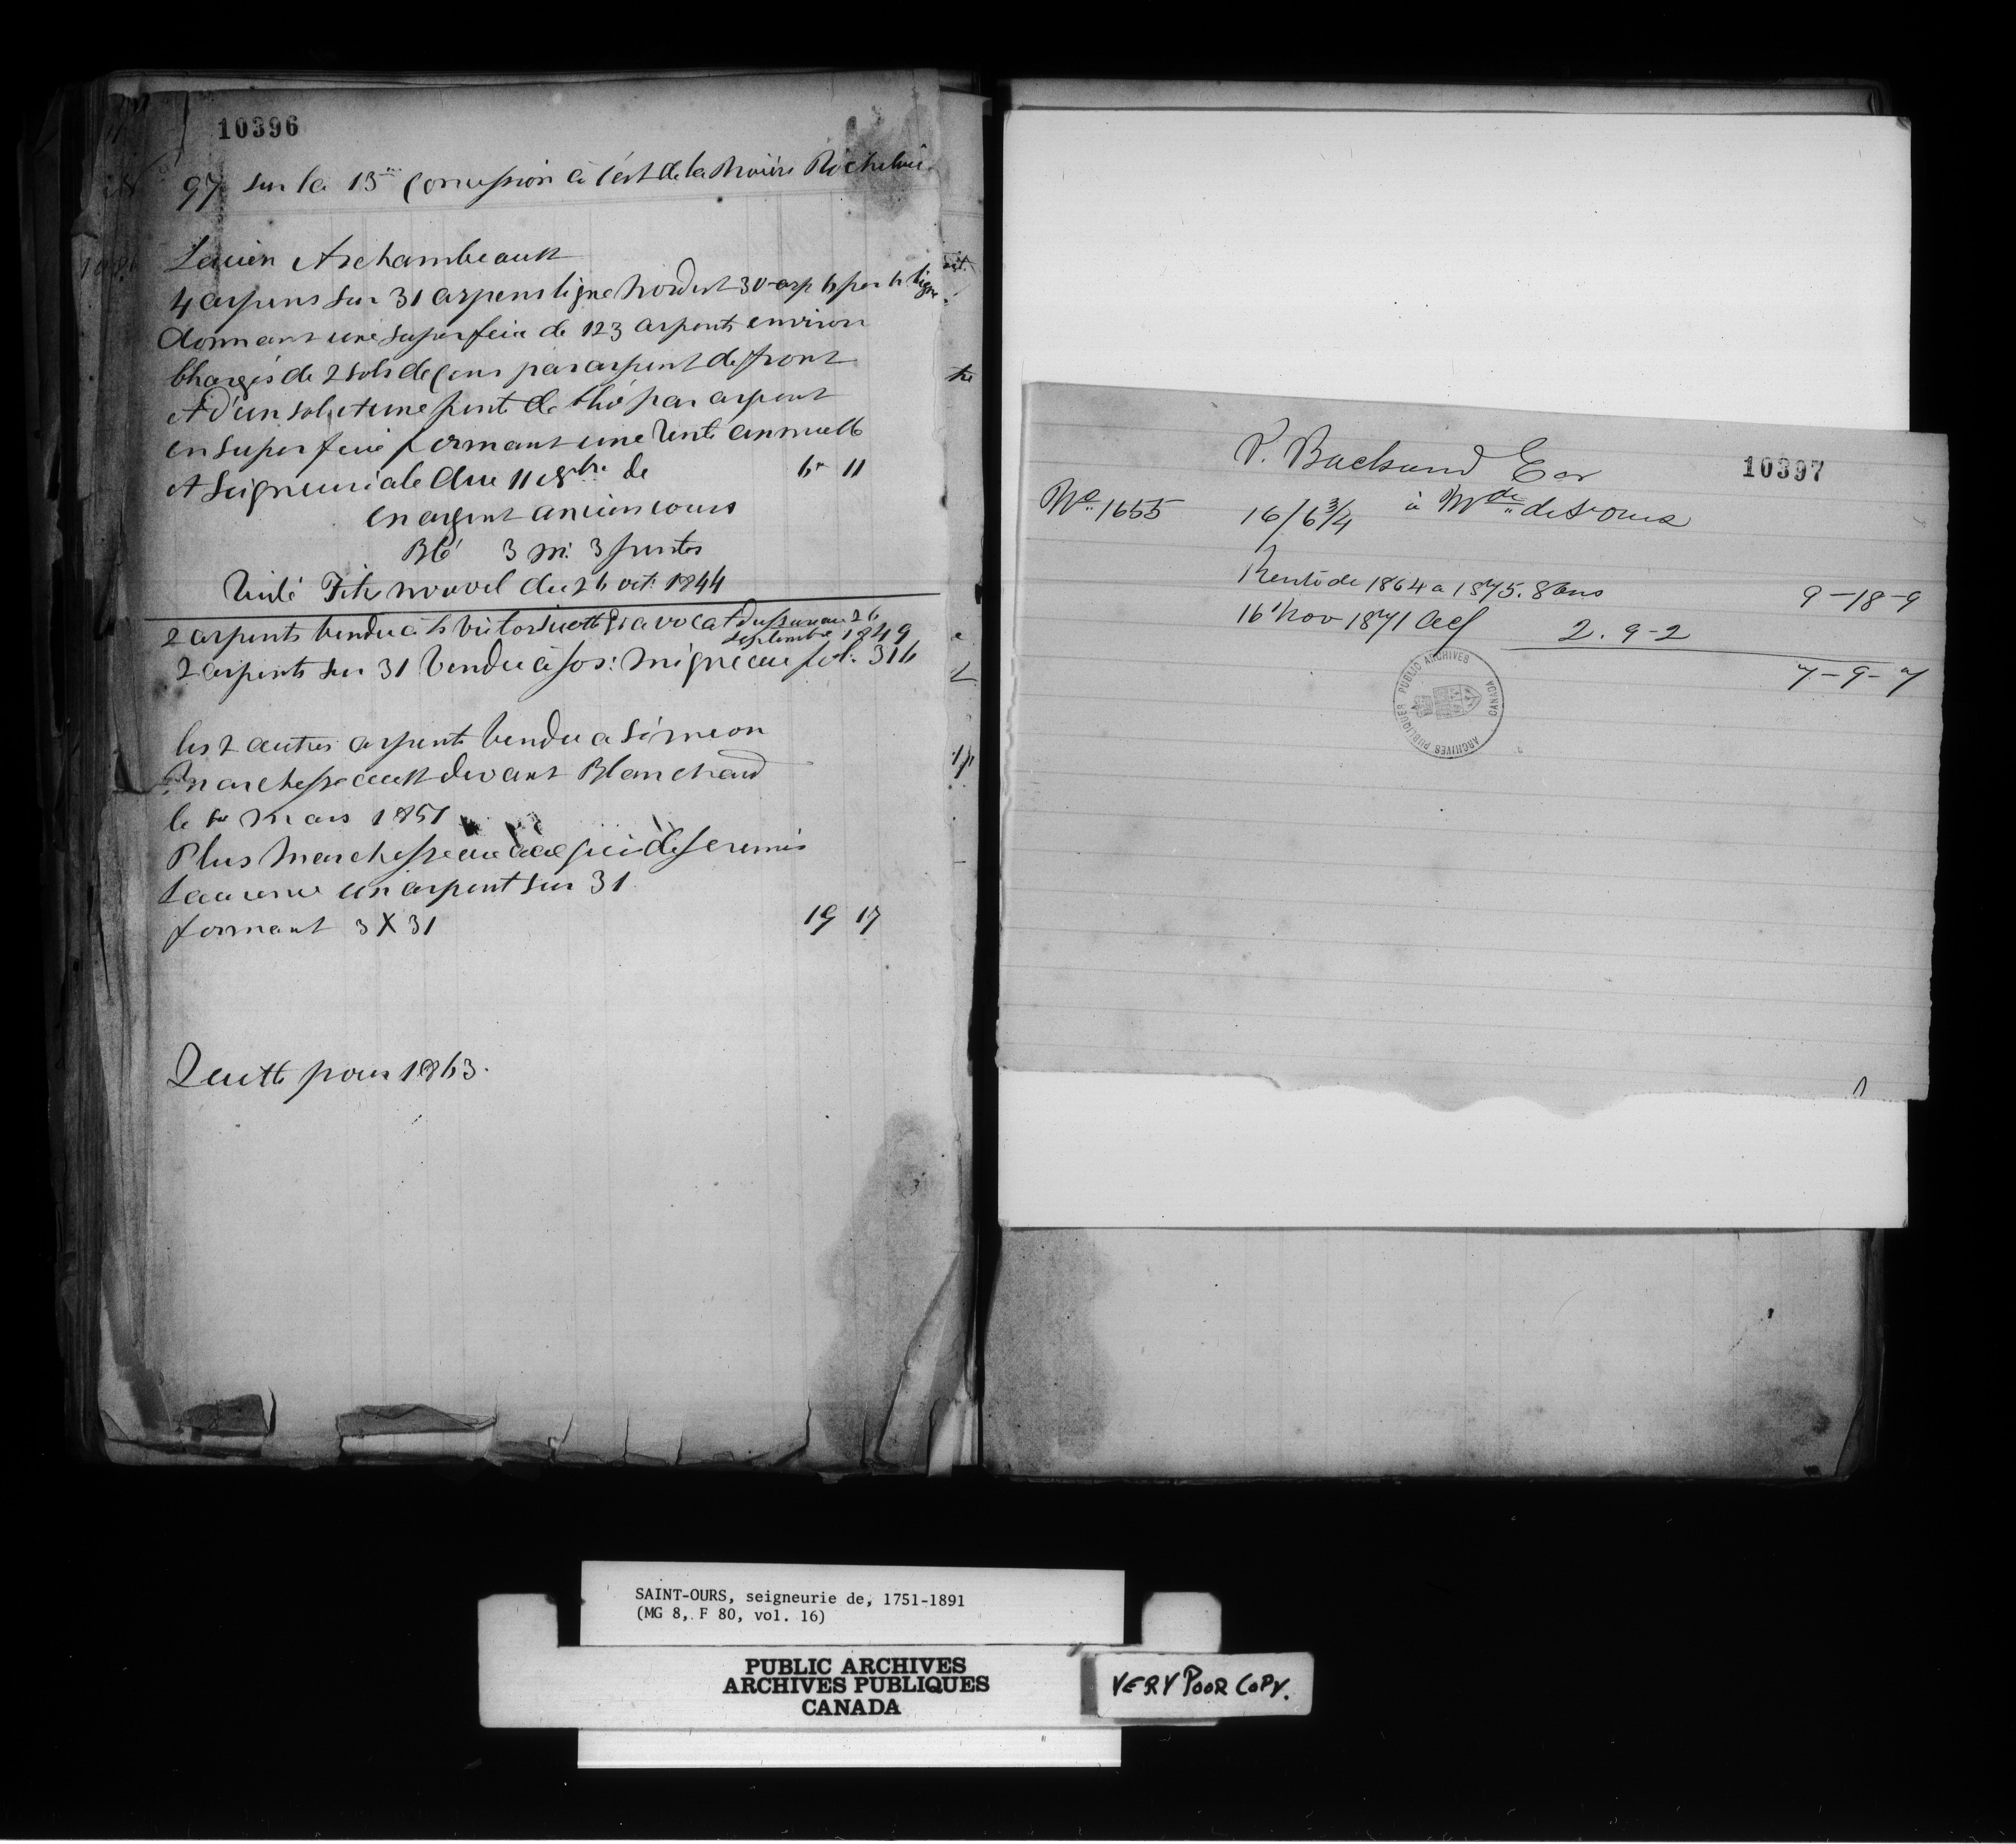 10396
97 sur la 13me Concession à l'est de la Rivière Richelieu
Archambeault
4 arpens sur 31 arpens ligne nordest 30 arp par ligne
donnant une superficie de 123 arpents environ
Chargés de 2 sols de Cens par arpent de front
et d'un sol et une pinte de blé par arpent
en superficie formant une rente annuelle
et Seigneuriale due 11 9bre de 6- 11
en argent ancien cours
Blé 3 m. 3 pintes
Titre nouvel du 26 oct. 1844
2 arpents vendu à avocat 26
septembre 1849
2 arpents sur 31 vendu à Jos: Migneau fol. 316
les 2 autres arpents vendu a Siméon
Marchesseault devant Blanchard
le mars 1851
Plus Marchesseau acquis de
un arpent sur 31
formant 3 X 31 19 17
Quitte pour 1863.
10397
No. 1655 16/6 3/4 à Mde de St Ours
Rente de 1864 a 1875. 8 ans 9-18-9
16 Nov 1871 2. 9-2
7-9-7
PUBLIC ARCHIVES
ARCHIVES PUBLIQUES
CANADA
SAINT-OURS, seigneurie de, 1751-1891
(MG 8, F 80, vol. 16)
PUBLIC ARCHIVES
ARCHIVES PUBLIQUES
CANADA
VERY POOR COPY.